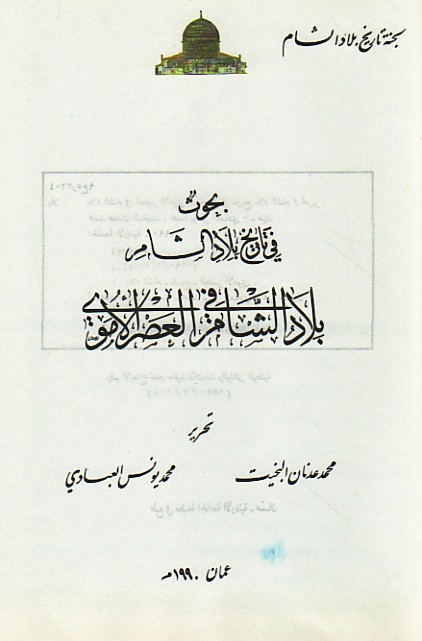 لجنة تاريخ بلاد الشام
بحوث
في تاريخ بلاد الشام
بلاد الشام في العصر الأموي
تحرير
محمد عدنان البخيت
محمد يونس العبادي
عمان ١٩٩٠م